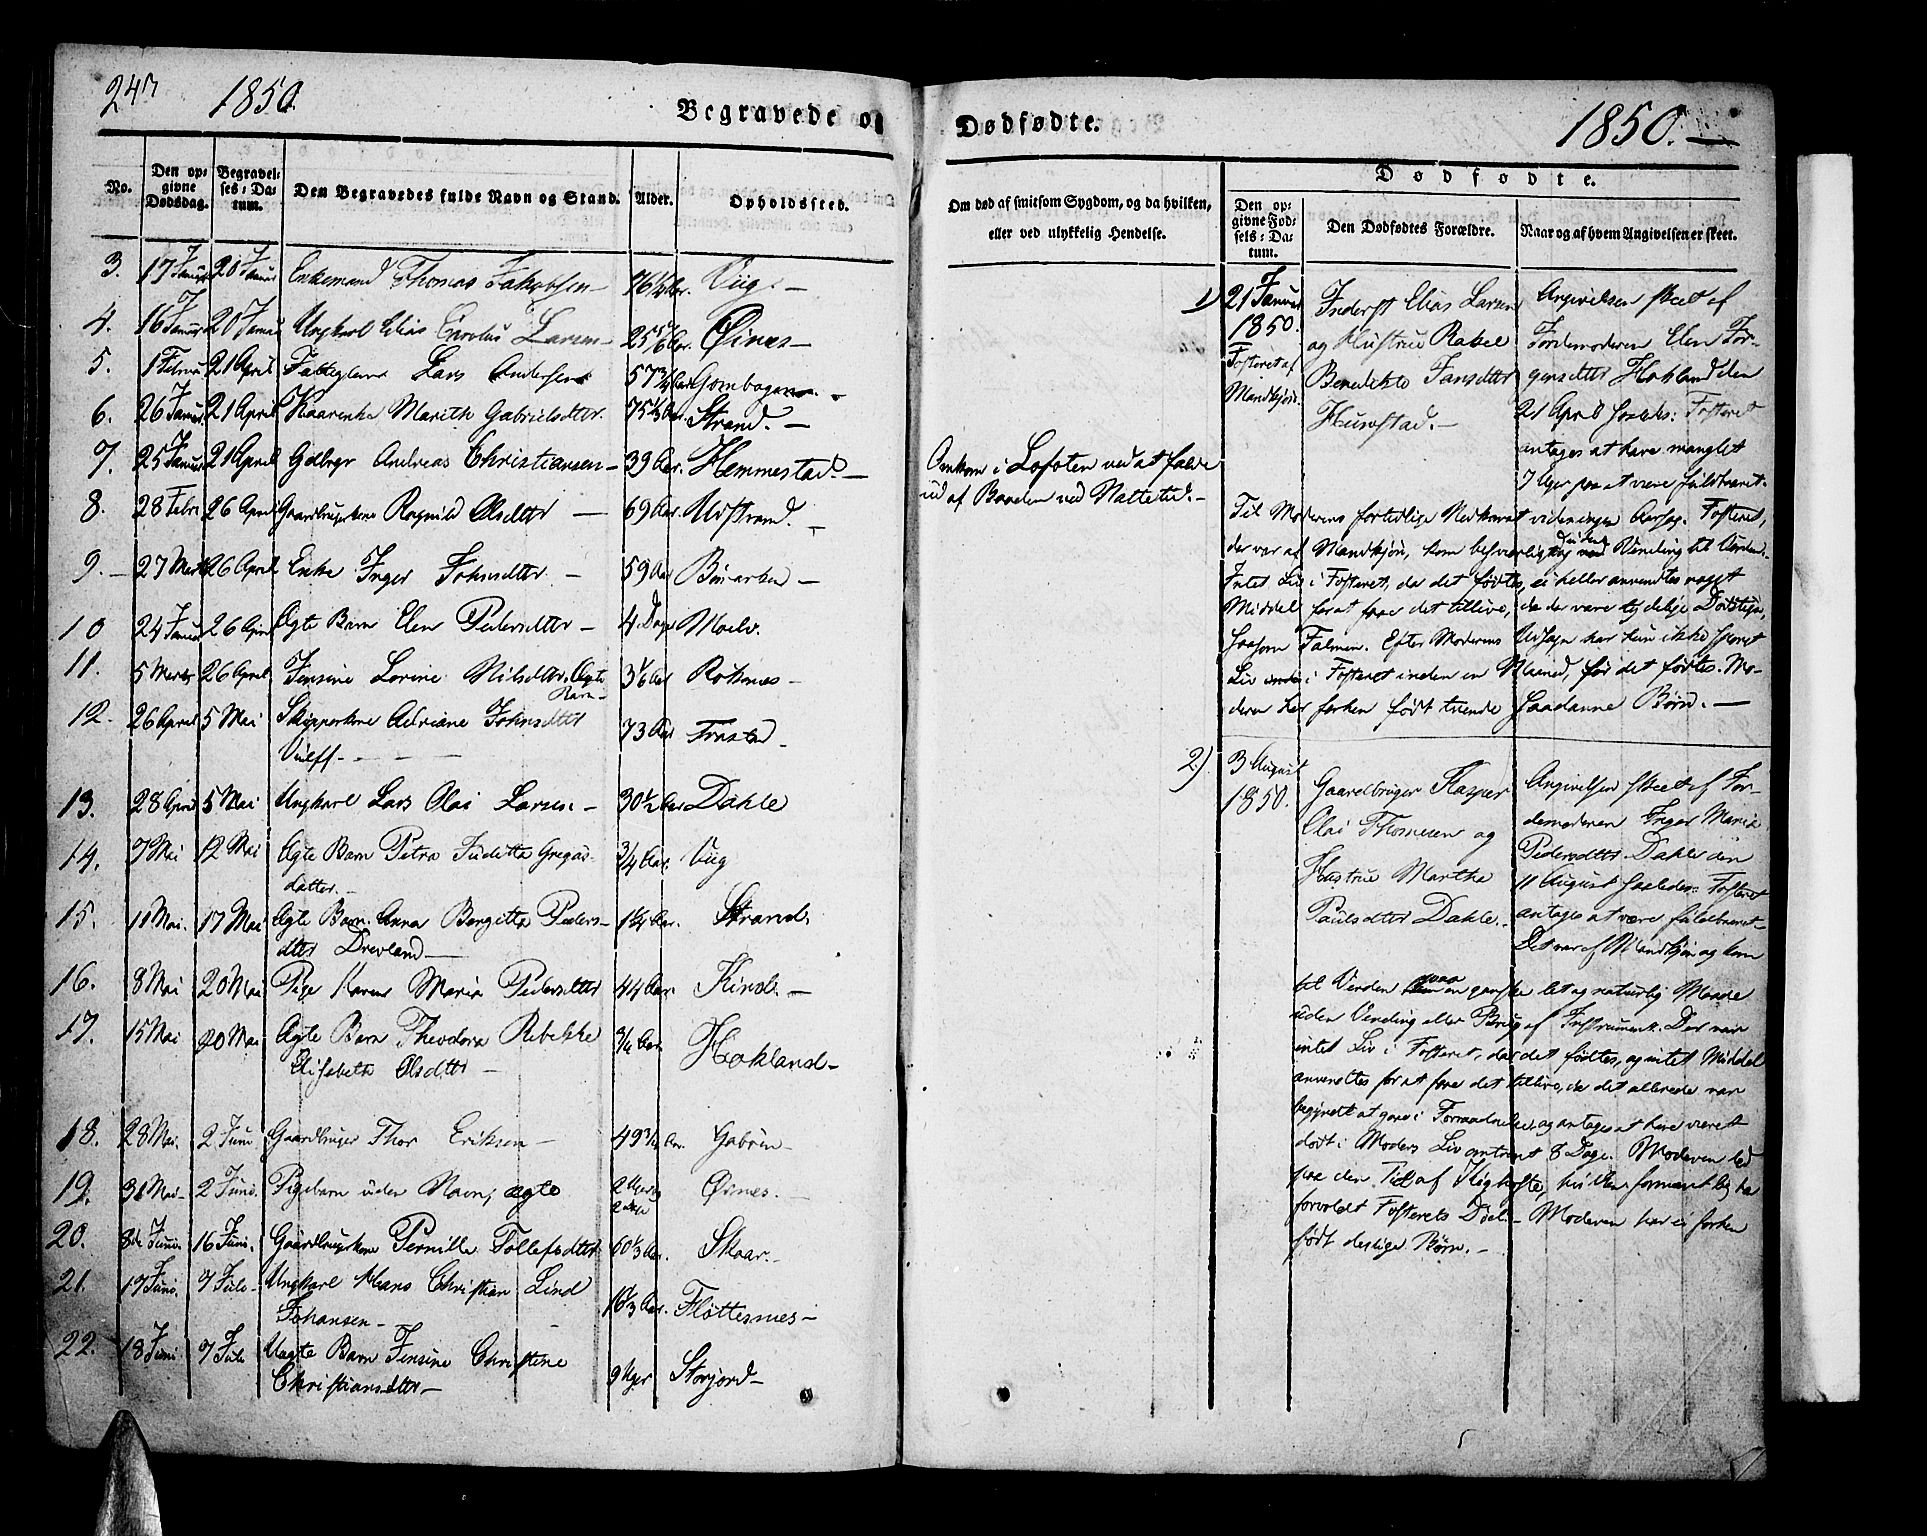 247 1850
Begravede o
No. Den op- givne Dødsdag. Begravel- ses-Da- tum. Den Begravedes fulde Navn og Stand. Alder. Opholdssted.
3. 17 Januar 20 Januar Enkemand Thomas Jakobsen 76 1/4 Aar. Viig.
4. 16 Januar 20 Januar Ungkarl Elias Larsen 25 5/6 Aar. Øines
5. 1 Februar 21 April Lars Andersen 57 3/4 Aar
6. 26 Januar 21 April Kaarenke Marith Gabrielsdtter 75 1/2 Aar. Strand.
7. 25 Januar 21 April Gdbrgr Andreas Christiansen 39 Aar. Hemmestad.
8. 28 Febr 26 April Gaardbrugerkone Ragnild Olsdtter 69 Aar.
9. 27 Marts 26 April Enke Inger Johnsdtter 59 Aar
10 24 Januar 26 April Ægte Barn Elen Pedersdtter 4 Dage Moelv.
11. 5 Marts 26 April Jensine Lorine Nilsdtter, Ægte 3 1/6 Aar
Barn
12. 26 April 5 Mai Skipperkone Adriane Johnsdtter 73 Aar
13. 28 April 5 Mai Ungkarl Lars Olai Larsen 30 1/2 Aar Dahle
14. 7 Mai 12 Mai Ægte Barn Petra Juditta Gregus- 3/4 Aar. Viig
datter.
15. 11 Mai. 17 Mai Ægte Barn Anna Bergitta Peders- 1 1/4 Aar. Strand.
dtter Drevland
16. 8 Mai 20 Mai Pige Karen Maria Pedersdtter 44 Aar. Kind.
17. 15 Mai 20 Mai Ægte Barn Theodora Rebekke Hokland
Elisabeth Olsdtter
18. 28 Mai. 2 Juni Gaardbruger Thor Eriksen 49 Aar.
19. 31 Mai 2 Juni. Pigebarn uden Navn, ægte 2 Uger og Øines.
2 Dage
20. 8de Juni 16 Juni. Gaardbrugerkone Pernille Tollefsdtter 60 1/3 Aar. Skaar.
21. 17 Juni. 7 Juli Ungkarl Hans Christian Lind 16 1/3 Aar. Fløttesnes
Johansen
22. 18 Juni 7 Juli Uægte Barn Jensine Christine 9 Uger Storjord
Christiansdtter
Dødfødte. 1850.
Om død af smitsom Sygdom, og da hvilken,
eller ved ulykkelig Hendelse.
Dødfødte.
Den op- givne Fød- sels-Da- tum. Den Dødfødtes Forældre. Naar og af hvem Angivelsen er skeet.
Omkom i Lofoten ved at falde
ud af Baaden ved Nattetid.
1) 21 Januar 1850. Fosteret af Mandkjøn.
Inderst Elias Larsen
og Hustrue Rakel
Benedikte Jansdtter
Hunstad.
Angivelsen skeet af
Jordemoderen Elen Jør-
gensdtter Hokland den
21 April saaledes: Fosteret
antages at have manglet
7 Uger paa at være fuldbaaret.
Til Moderens fortidlige Nedkomst vides ingen Aarsag. Fosteret,
der var af Mandkjøn, kom besværligt ved Vending til Verden.
Intet Liv i Fosteret, da det fødtes, ei heller anvendtes noget
Middel for at faae det tillive, da der vare tydelige Dødstegn,
saasom Efter Moderens Udsagn har hun ikke sporet
Liv i Fosteret inden en Maaned, før det fødtes. Mo-
deren har forhen født tvende saadanne Børn.
2) 3 August 1850.
Gaardbruger Kasper
Olai Thomesen og
Hustrue Marthe
Paulsdtter Dahle.
Angivelsen skeet af Jor-
demoderen Inger Maria
Pedersdtter Dahle den
11 August saaledes: Fosteret
antages at være fuldbaaret
Det var af Mandkjøn og kom
til Verden paa en ganske let og naturlig Maade
uden Vending eller Brug af Instrument. Der var
intet Liv i Fosteret, da det fødtes, og intet Middel
anvendtes for at faae det tillive, da det allerede var
begyndt at gaae i Forraadnelse, og antages at have været
dødt i Moders Liv omtrent 8 Dage. Moderen led
paa den Tid af Kighoste, hvilken formentlig har
forvoldt Fosterets Død. Moderen har ei forhen
født deslige Børn.